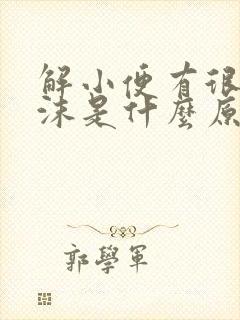 解小便有很
沫是什麼原
郭學軍